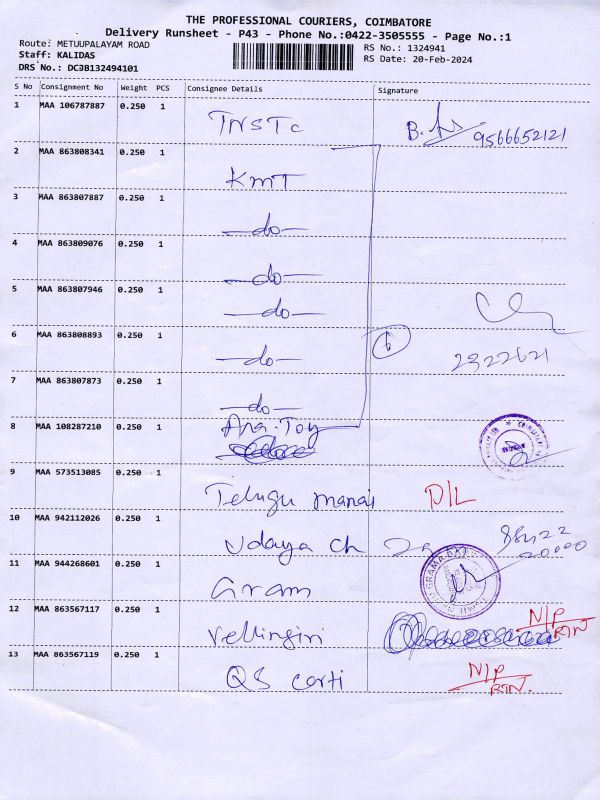 THE PROFESSIONAL COURIERS, COIMBATORE
Delivery Runsheet - P43 - Phone No.:0422-3505555 - Page No.:1
Route: METUUPALAYAM ROAD
RS No.: 1324941
Staff: KALIDAS
RS Date: 20-Feb-2024
DRS No.: DCJB132494101
S No Consignment No Weight PCS Consignee Details Signature
1 MAA 106787887 0.250 1 TNSTC B. 9566652121
2 MAA 863808341 0.250 1 KMT
3 MAA 863807887 0.250 1 -do-
4 MAA 863809076 0.250 1 -do-
5 MAA 863807946 0.250 1 -do-
6 MAA 863808893 0.250 1 -do- 6 2322621
7 MAA 863807873 0.250 1 -do-
8 MAA 108287210 0.250 1
9 MAA 573513085 0.250 1 Telugu D/L
10 MAA 942112026 0.250 1 Udaya Ch
11 MAA 944268601 0.250 1 Gram
12 MAA 863567117 0.250 1 Vellingiri N/P RTN
13 MAA 863567119 0.250 1 QS certi N/P RTN.